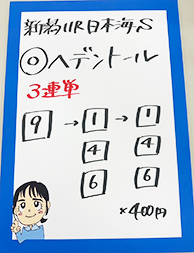 新潟11R日本海S
◎ヘデントール
3連単
9→1→1
4 4
6 6
×400円